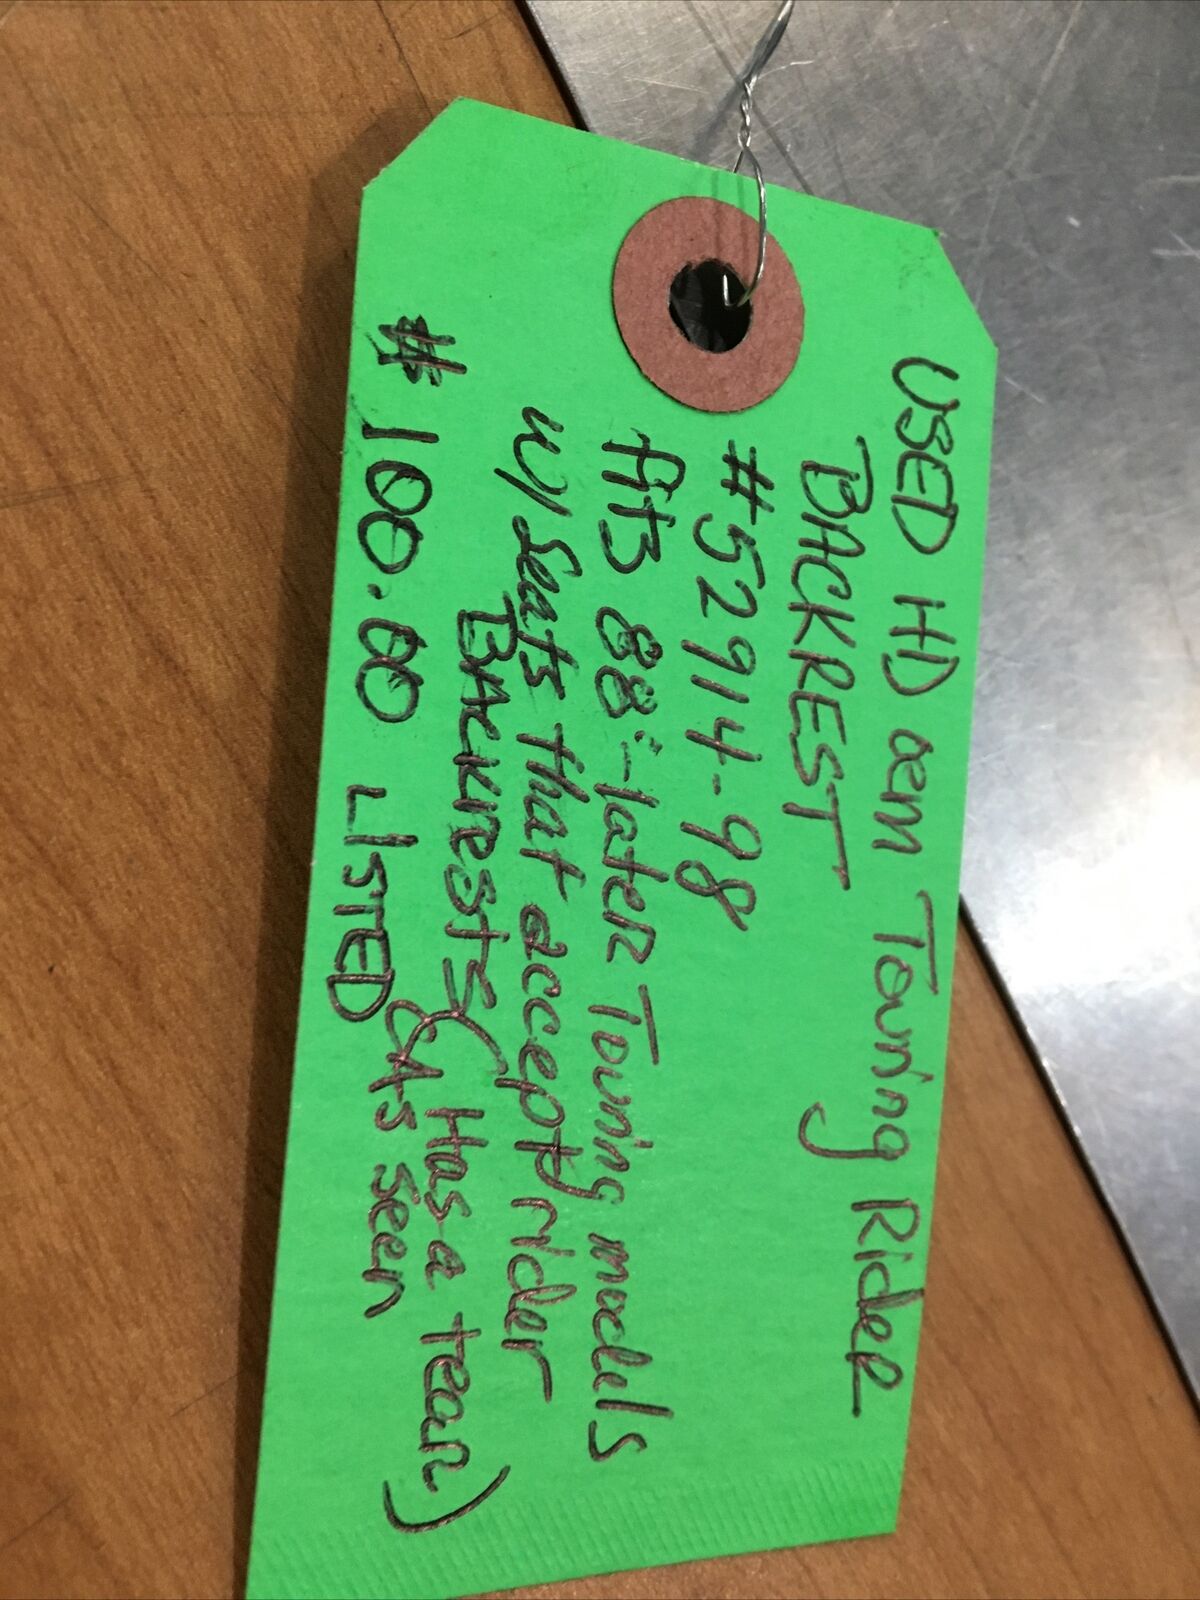 USED HD oem Touring RideR
BACKREST
#52914-98
fits 88'-lateR Touring models
w/ seats that accept rider
BACKrests (Has a tear)
$100.00 LISTED (As seen